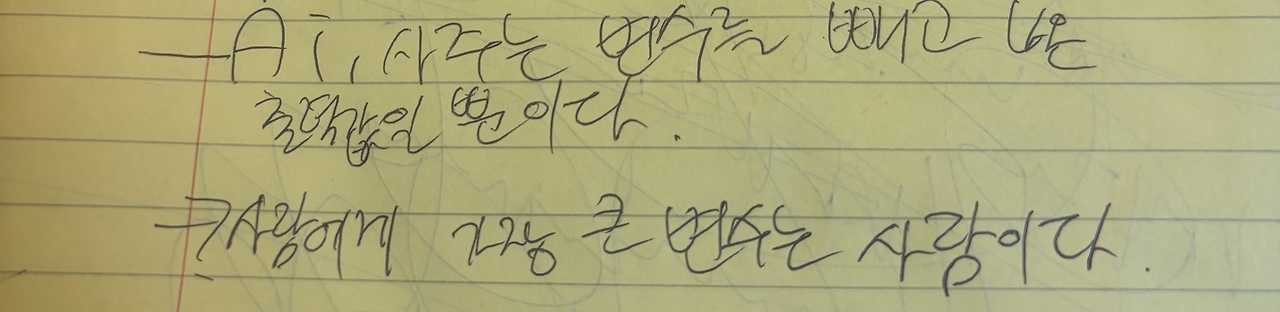 — AI, 사주는 변수를 빼고 낳은
출력값일 뿐이다.
→ 사람에게 가장 큰 변수는 사람이다.